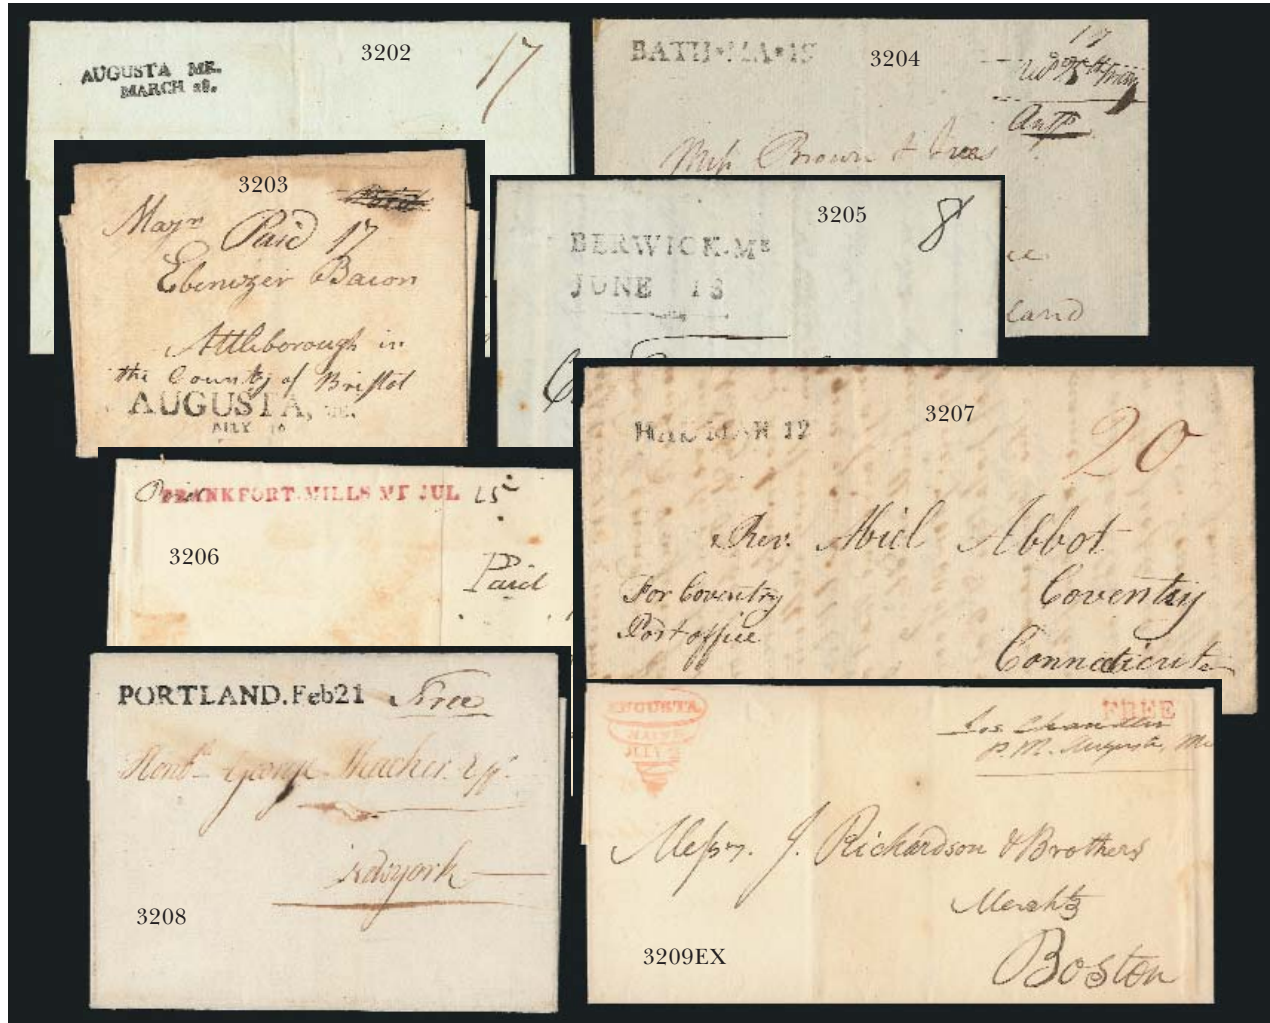 3202
17
AUGUSTA ME.
MARCH 28.
BATH MA 18
3204
17
Brown & Ives
land
3203
Majr
Paid 17
Ebenezer Bacon
Attleborough in
the County of Bristol
AUGUSTA, ME.
3205
8
BERWICK. ME
JUNE 18
3207
HAL MAR 12
20
Rev. Abiel Abbot
For Coventry
Post office
Coventry
Connecticut
Paid
FRANKFORT. MILLS ME JUL 25
3206
Paid
PORTLAND. Feb 21
Free
Honble George Thacher Esqr.
Newyork
3208
AUGUSTA
MAINE
JULY
FREE
Jos Chandler
P. M. Augusta, Me
Messrs. J. Richardson & Brothers
Merchts
Boston
3209EX